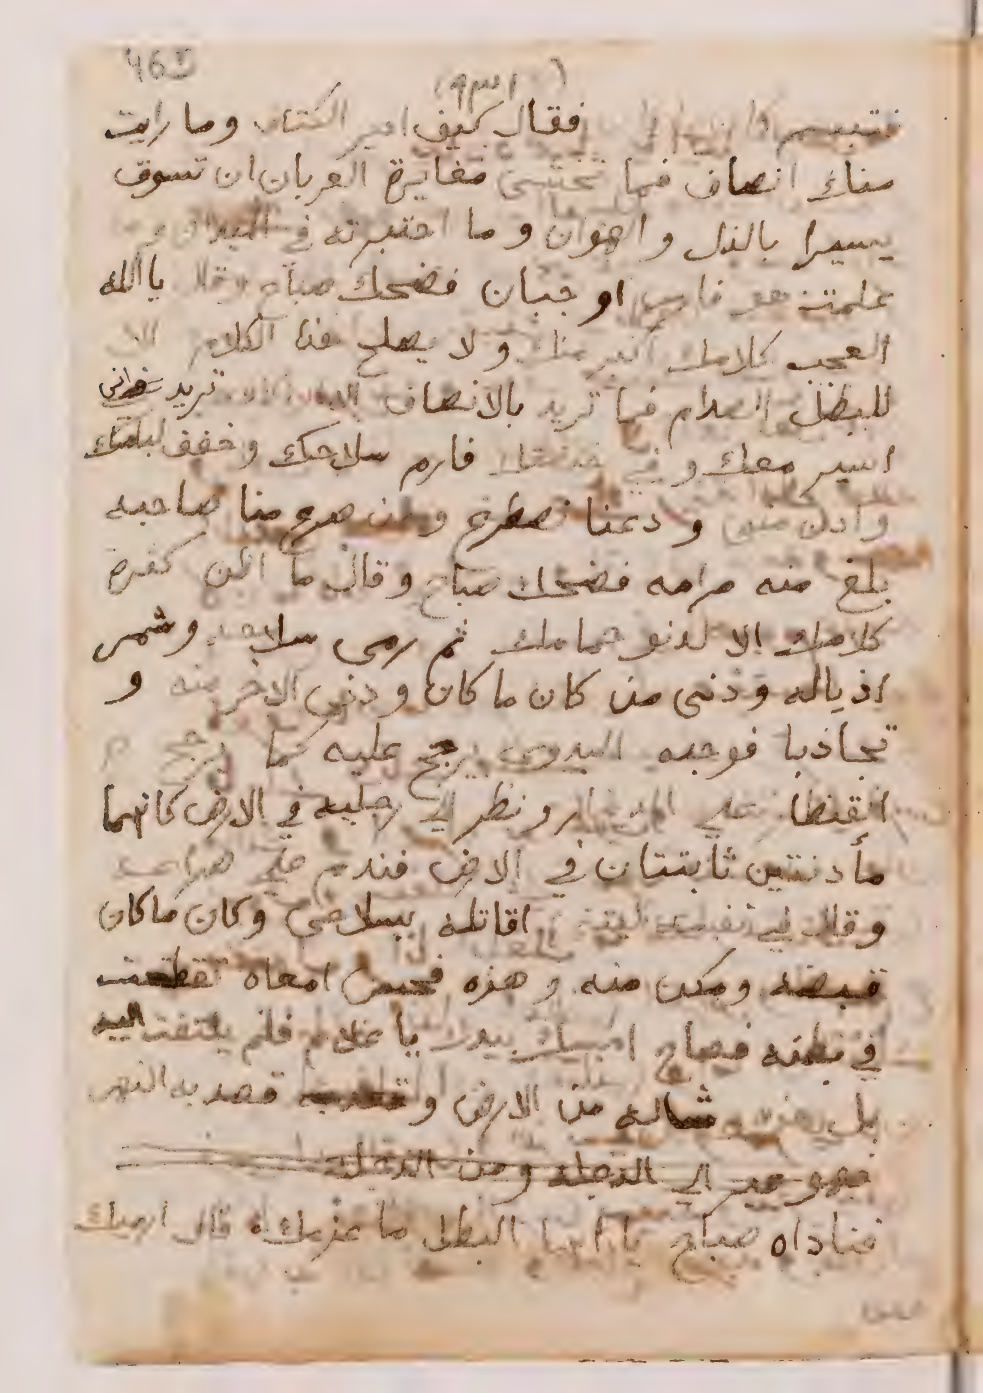 465
(٩٣١)
فتبسم فقال كيف امير الكتاب وما رايت
منك انصاف فما تخشى مغايرة العربان ان تسوق
يسيرا بالذل والهوان وما اختبرته في الميدان وما
علمت هو فارس او جبان فضحك صباح وقال يا الله
العجب كلامك اكبر منك ولا يصلح هذا الكلام الا
للبطل الصدام فما تريد بالانصاف تريد
اسير معك وفي خدمتك فارم سلاحك وخفف لباسك
وادن مني ودعنا نصطرع ومن صرع منا صاحبه
بلغ منه مرامه فضحك صباح وقال ما اظن كثرة
كلامك الا لدنو حمامك ثم رمى سلاحه وشمر
اذياله ودنى من كان ما كان ودنى الاخر منه و
تجاذبا فوجده البدوي يرجح عليه كما يرجح
القنطار على الدينار ونظر الى رجليه في الارض كانهما
مأدنتين ثابتتان في الارض فندم على صراعه
وقال في نفسه ليتني اقاتله بسلاحي وكان ماكان
قبضه ومكن منه وهزه فحس امعاه تقطعت
في بطنه فصاح امسك يدك يا غلام فلم يلتفت اليه
بل شاله من الارض و قصد به النهر
الى الدجلة ومن الدجلة
فناداه صباح يا ايها البطل ما عزمك قال ارميك